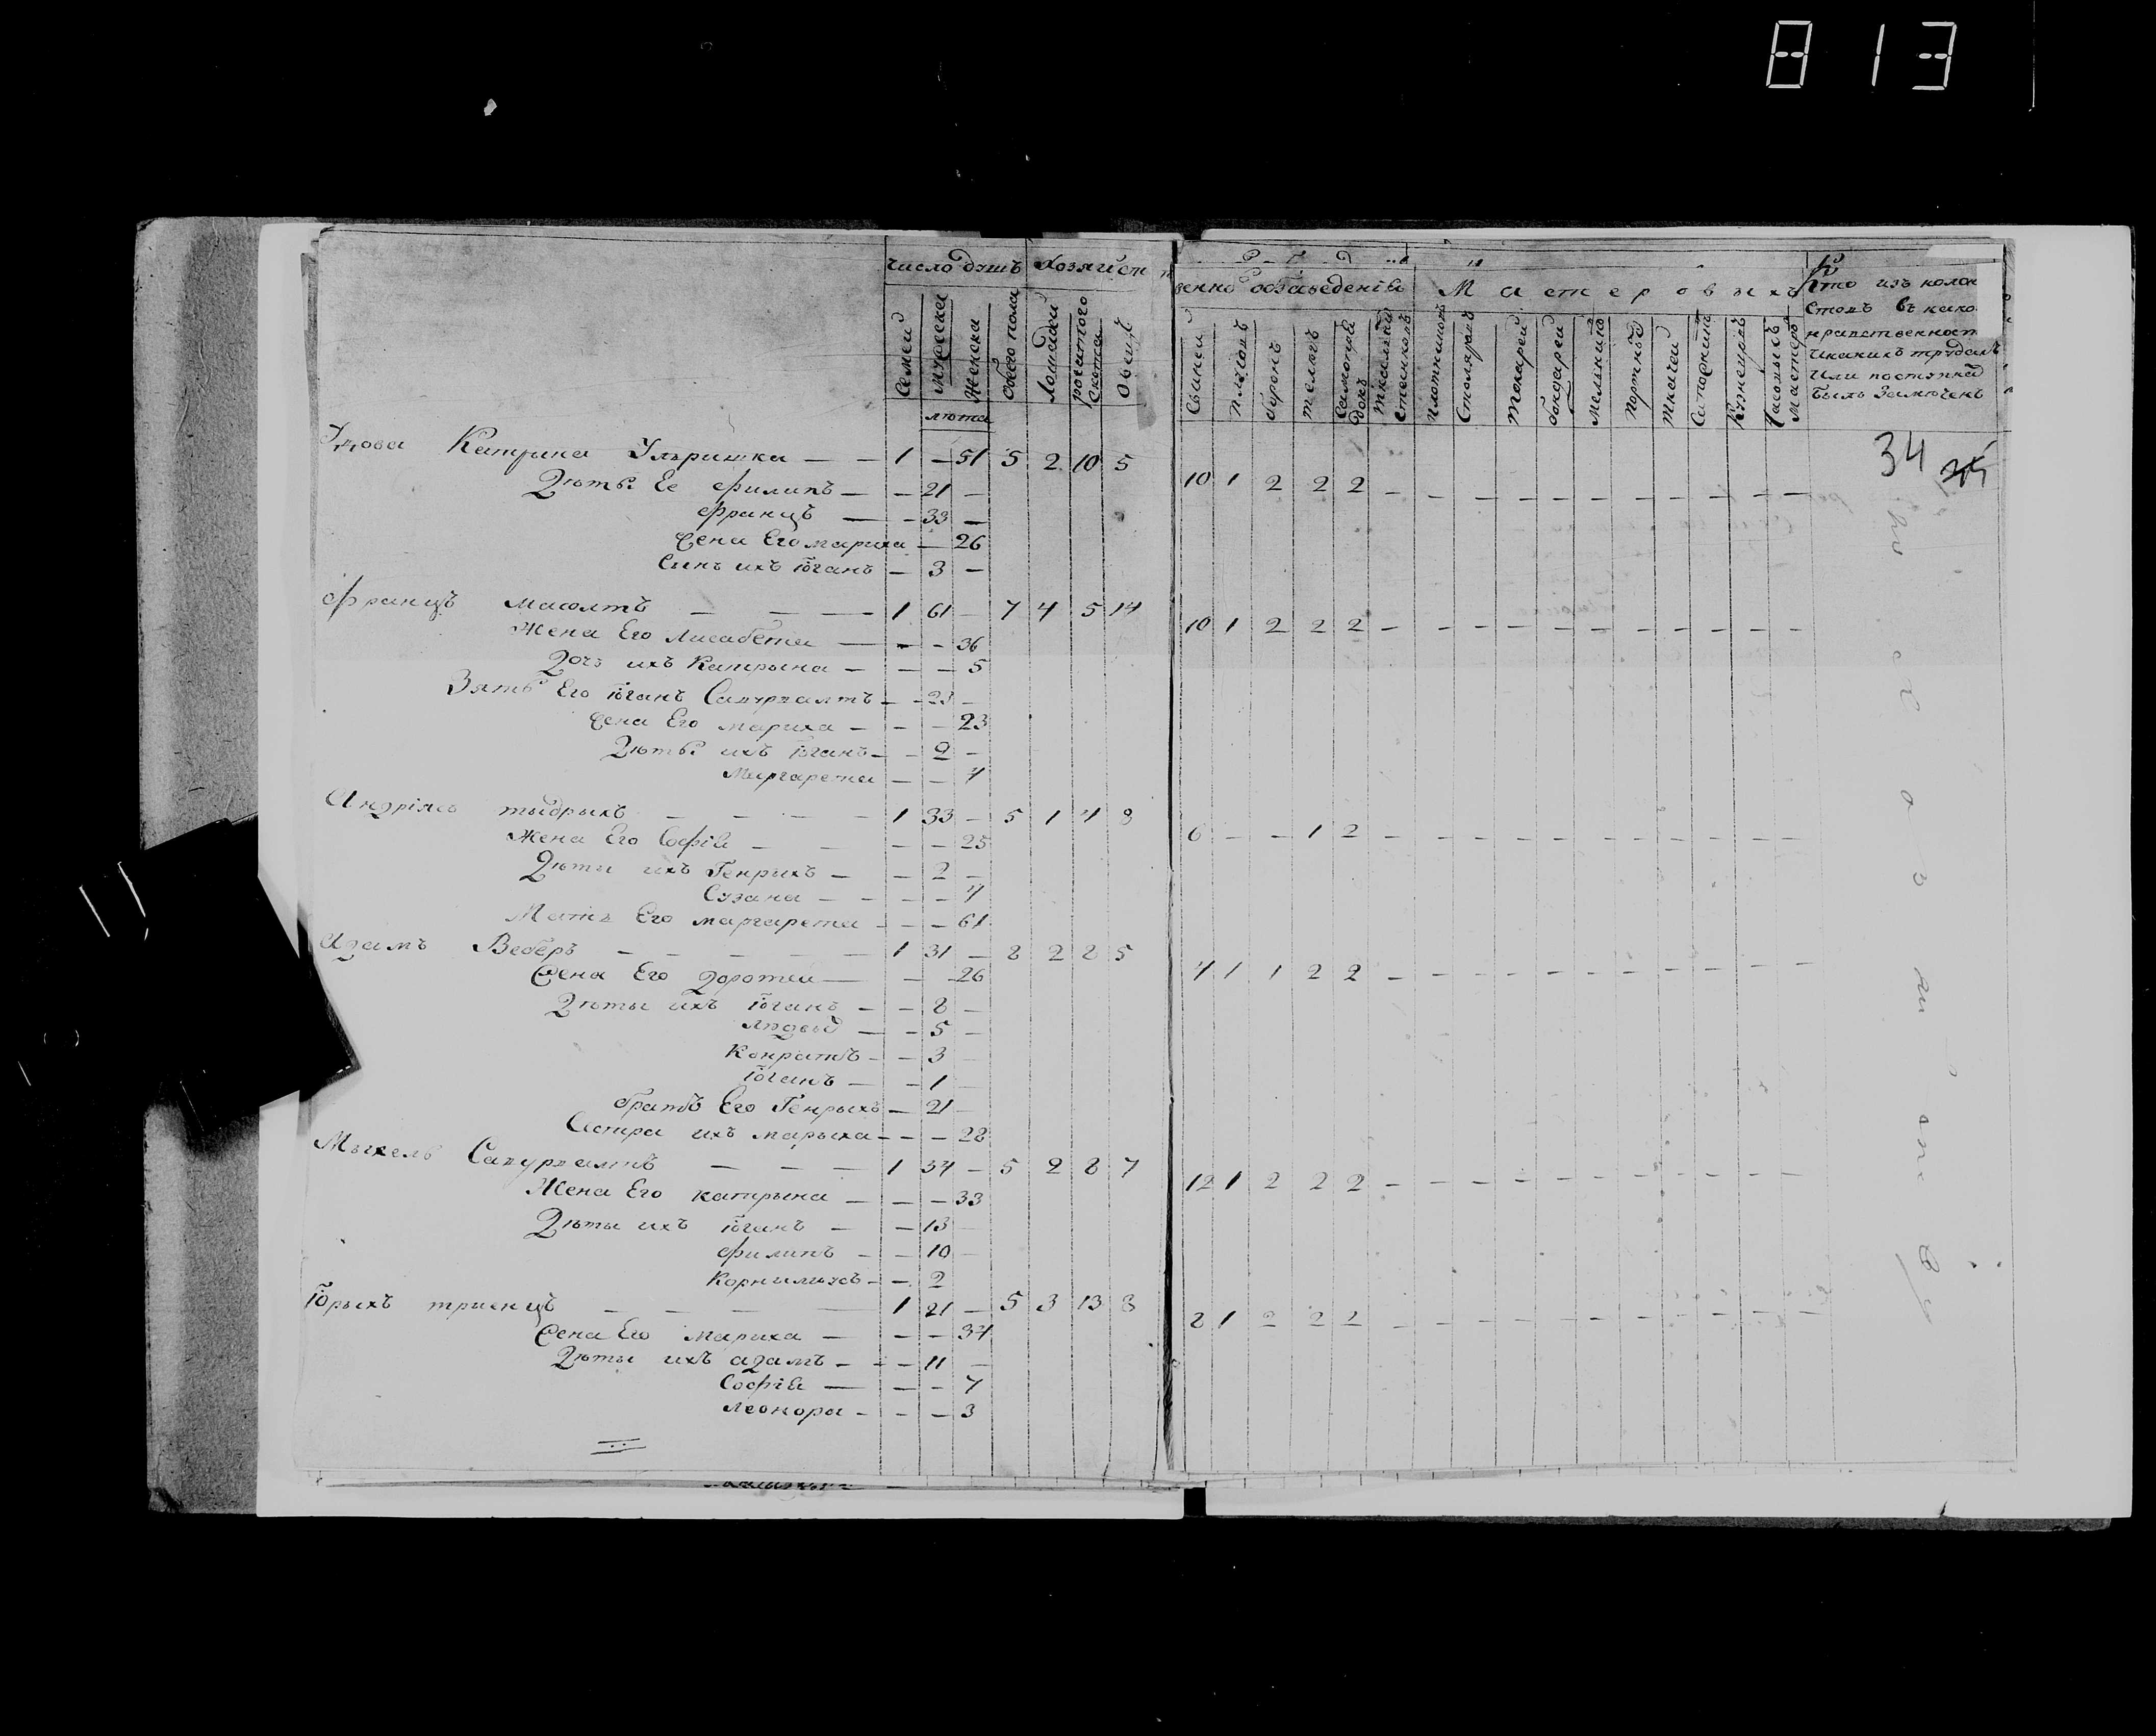 813
число душъ Хозяйст
венно обзаведенія М а с т е р о в ы х ъ
Кто изъ колон
стовъ въ како
нравственност
Или поступкаъ
былъ Замѣченъ
Семей мужеска Женска Обоего пола Лошадей рогатого Скота Овецъ
Свиней плуговъ боронъ телегъ Самопрядокъ ткальныхъ станковъ плотниковъ Столяровъ Токарей бондарей Мельник портныхъ ткачей Сапожник Кузнецовъ Часовыхъ мастеръ
лѣта
34 35
Удова Катрина Ульришка — — 1 — 51 5 2 10 5 10 1 2 2 2 — — — — — — — — — — —
Дѣти Ее Филипъ — — 21 —
Францъ — — 33 —
Жена Его Мариха — 26
Синъ ихъ Юганъ — 3 —
Францъ Масолтъ — — — 1 61 — 7 4 5 14 10 1 2 2 2 — — — — — — — — — — —
Жена Его Лисабета — — — 36
Дочъ ихъ Катрына — — — 5
Зять Его Юганъ — — 23 —
Жена Его мариха — — — 23
Дѣти ихъ Юганъ — — 2 —
Маргарета — — 4
Андріясъ тыдрыхъ — — — — 1 33 — 5 1 4 8 6 — — 1 2 — — — — — — — — — — —
Жена Его Софія — — — — 25
Дѣти ихъ Генрихъ — — 2 —
Сузана — — — — 4
Мать Его маргарета — — — 61
Адамъ Веберъ — — — — — 1 31 — 8 2 8 5 4 1 1 2 2 — — — — — — — — — — —
Жена Его Доротеи — — — 26
Дѣти ихъ Юганъ — — 8 —
Людвы — — 5 —
Конратъ — — 3 —
Юганъ — — 1 —
братъ Его Генрыхъ — 21 —
Систра ихъ марыха — — — 28
Мыхель Сапурвалтъ — — — 1 34 — 5 2 8 7 12 1 2 2 2 — — — — — — — — — — —
Жена Его катрына — — — 33
Дѣти ихъ Юганъ — — 13 —
Филипъ — — 10 —
Корнылиусъ — — 2
Юрыхъ триенцъ — — — — 1 21 — 5 3 13 8 8 1 2 2 2 — — — — — — — — — — —
Жена Его Мариха — — — 34
Дѣти ихъ адамъ — — — 11 —
Софія — — — 7
Леонора — — — 3